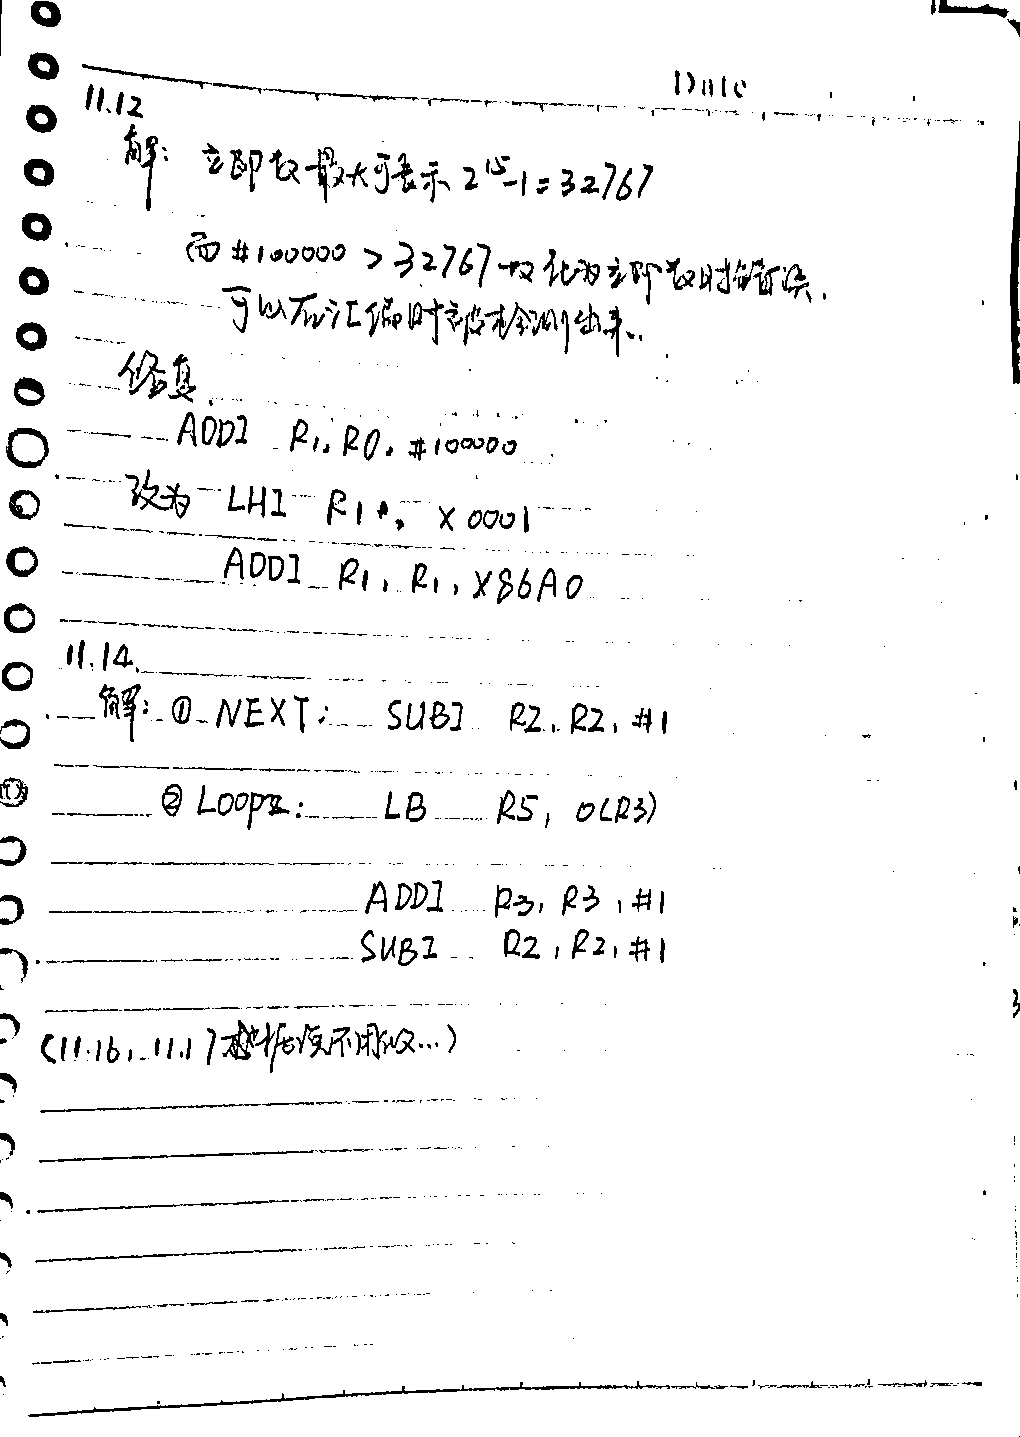 Date
11.12
解: 立即数最大可表示 2^15-1=32767
而 #100000 > 32767 故化为立即数时错误.
可以在汇编时被检测出来.
修复
ADDI R1, R0, #100000
改为 LHI R1, x0001
ADDI R1, R1, x86A0
11.14.
解: ① NEXT: SUBI R2, R2, #1
② Loop2: LB R5, 0(R3)
ADDI R3, R3, #1
SUBI R2, R2, #1
(11.16, 11.17 不用...)